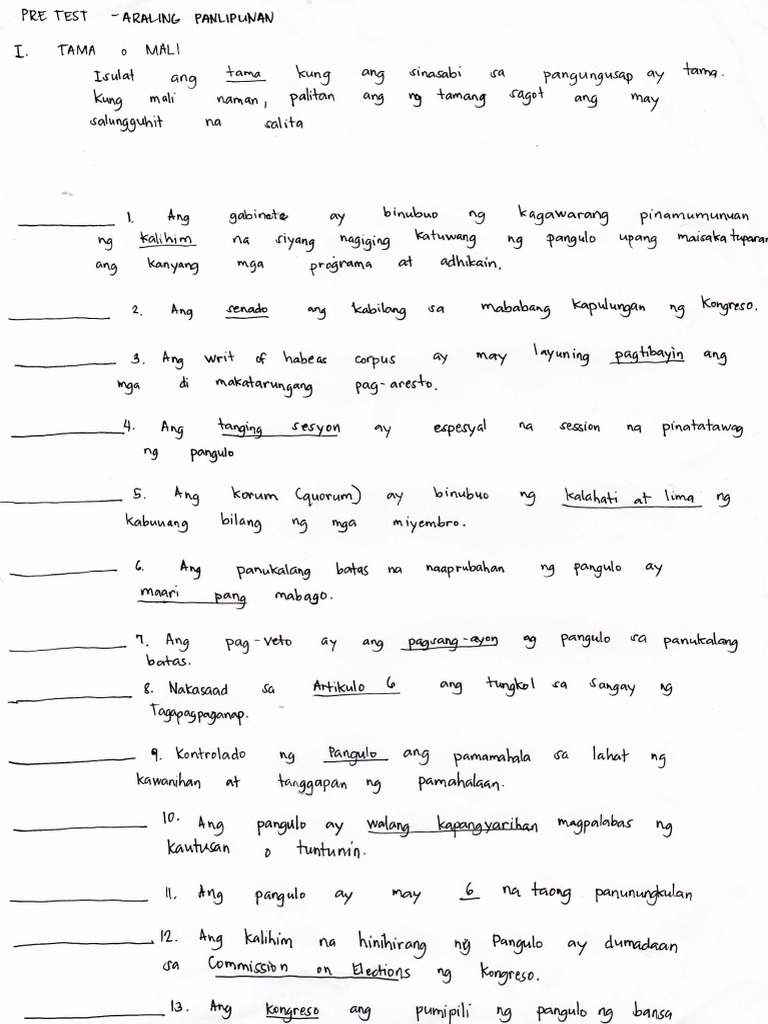 PRE TEST - ARALING PANLIPUNAN
I. TAMA o MALI
Isulat ang tama kung ang sinasabi sa pangungusap ay tama.
Kung mali naman, palitan ang ng tamang sagot ang may
salungguhit na salita
1. Ang gabinete ay binubuo ng kagawarang pinamumunuan
ng kalihim na siyang nagiging katuwang ng pangulo upang maisakatuparan
ang kanyang mga programa at adhikain.
2. Ang senado ang kabilang sa mababang kapulungan ng Kongreso.
3. Ang writ of habeas corpus ay may layuning pagtibayin ang
mga di makatarungang pag-aresto.
4. Ang tanging sesyon ay espesyal na session na pinatatawag
ng pangulo
5. Ang korum (quorum) ay binubuo ng kalahati at lima ng
kabuuang bilang ng mga miyembro.
6. Ang panukalang batas na naaprubahan ng pangulo ay
maari pang mabago.
7. Ang pag-veto ay ang pagsang-ayon ng pangulo sa panukalang
batas.
8. Nakasaad sa Artikulo 6 ang tungkol sa sangay ng
Tagapagpaganap.
9. Kontrolado ng Pangulo ang pamamahala sa lahat ng
kawanihan at tanggapan ng pamahalaan.
10. Ang pangulo ay walang kapangyarihan magpalabas ng
kautusan o tuntunin.
11. Ang pangulo ay may 6 na taong panunungkulan
12. Ang kalihim na hinihirang ng Pangulo ay dumadaan
sa Commission on Elections ng Kongreso.
13. Ang kongreso ang pumipili ng pangulo ng bansa